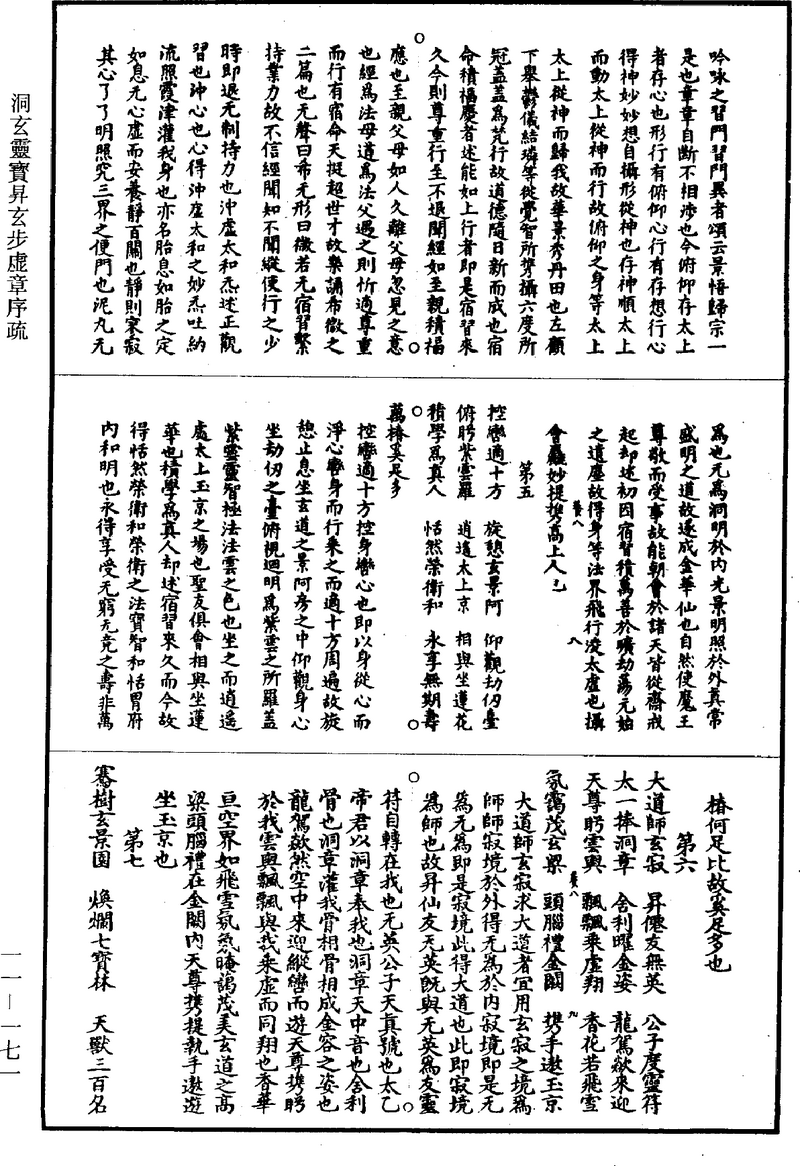 吟咏之習門習門異者頌云景悟歸宗一
是也章章自斷不相涉也今俯仰存太上
者存心也形行有俯仰心行有存想行心
得神妙妙想自攝形從神也存神順太上
而動太上從神而行故俯仰之身等太上
太上從神而歸我故華景秀丹田也左顧
下舉鬱儀結璘等從覺智所發攝六度所
冠蓋蓋為梵行故道德隨日新而成也宿
命積福慶者述能如上行者即是宿習來
久今則尊重行至不退聞經如至親積福
應也至親父母如人久離父母忽見之意
也經為法母道為法父遇之則忻適尊重
而行有宿命天挺超世才故樂誦希微之
二篇也无聲曰希无形曰微若无宿習繫
持業力故不信經聞知不聞縱使行之少
時即退无制持力也沖虛太和炁述正觀
習也沖心也心得沖虛太和之妙炁吐納
流照霞津灌我身也亦名胎息如胎之定
如息无心虛而安養靜百關也靜則寂寂
其心了了明照究三界之便門也泥丸无
為也无為洞明於內光景明照於外真常
盛明之道故遂成金華仙也自然使魔王
尊敬而受事故能朝會於諸天皆從齋戒
起却述初因宿習積萬善於曠劫蕩元始
之遺塵故得身等法界飛行凌太虛也攝
會羅妙提攜高上人也
第五
控轡適十方 旋憩玄景阿 仰觀劫仞臺
俯眄紫雲羅 逍遙太上京 相與坐蓮花
積學為真人 恬然榮衛和 永享無期壽
萬椿奚足多
控轡適十方控身轡心也即以身從心而
淨心轡身而行乘之而適十方周遍故旋
憩止息坐玄道之景阿房之中仰觀身心
坐劫仞之臺俯視迴明為紫雲之所羅蓋
紫雲靈智極法法雲之色也坐之而逍遙
處太上玉京之場也聖友俱會相與坐蓮
華也積學為真人却述宿習來久而今故
得恬然榮衛和榮衛之法寶智和恬胃府
內和明也永得享受无窮无竟之壽非萬
椿何足比故奚足多也
第六
大道師玄寂 昇僊友無英 公子度靈符
太一捧洞章 舍利曜金姿 龍駕欻來迎
天尊眄雲輿 飄飄乘虛翔 香花若飛雪
氛靄茂玄梁 頭腦禮金闕 攜手遨玉京
大道師玄寂求大道者宜用玄寂之境為
師師寂境於外得无為於內寂境即是无
為无為即是寂境此得大道也此即寂境
為師也故昇仙友无英旣與无英為友靈
符自轉在我也无英公子天真號也太乙
帝君以洞章奉我也洞章天中音也舍利
骨也洞章灌我骨相骨相成金容之姿也
龍駕欻然空中來迎縱轡而遊天尊攜眄
於我雲輿飄飄與我乘虛而同翔也香華
亘空界如飛雪氛氛晻靄茂美玄道之高
梁頭腦禮在金闕內天尊攜提執手遨遊
坐玉京也
第七
騫樹玄景園 煥爛七寶林 天獸三百名
洞玄靈寶昇玄步虛章序疏
一一—一七一